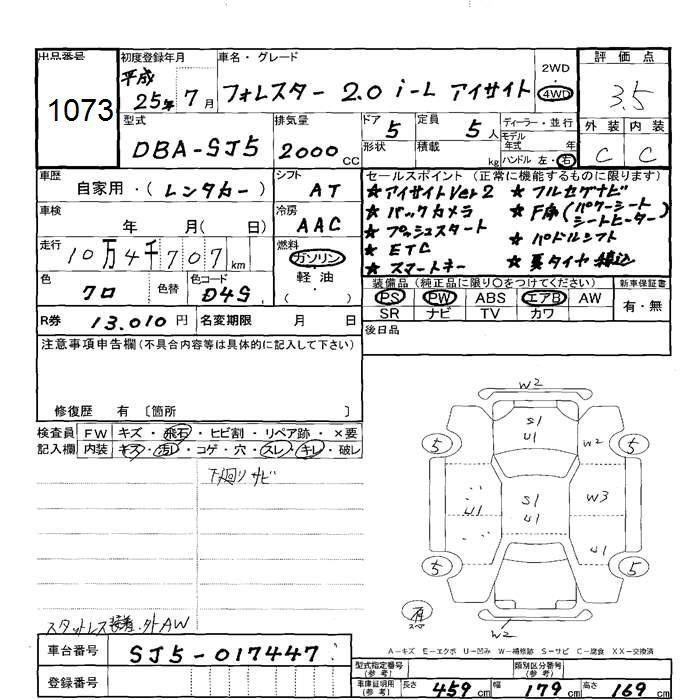 出品番号 初度登録年月 車名・グレード 2WD 評価点
1073 平成25年7月 フォレスター 2.0 i-L アイサイト 4WD 3.5
型式 排気量 ドア 5 定員 5人 ディーラー・並行 外装 内装
DBA-SJ5 2000cc 形状 積載 kg モデル年式 年 C C
ハンドル 左・右
車歴 シフト セールスポイント(正常に機能するものに限ります)
自家用・(レンタカー) AT ★アイサイトVer2 ★フルセグナビ
車検 年 月(日) 冷房 AAC ★バックカメラ ★F席(パワーシート シートヒーター)
走行 燃料 ★プッシュスタート ★パドルシフト
10万4千707km ガソリン ★ETC ★夏タイヤ積込
軽油 ★スマートキー
色 クロ 色替 色コード D4S 装備品(純正品に限り○をつけてください) 新車保証書
PS PW ABS エアB AW 有・無
SR ナビ TV カワ
R券 13,010円 名変期限 月 日 後日品
注意事項申告欄(不具合内容等は具体的に記入して下さい)
修復歴 有〔箇所 〕
検査員 FW キズ・飛石・ヒビ割・リペア跡・×要
記入欄 内装 キズ・汚れ・コゲ・穴・スレ・キレ・破レ
下回りサビ
W2
S1
U1
5 W2 5
U1 S1 U1 W3
U1
5 5
W2
スタットレス装着・外AW
A-キズ E-エクボ U-凹み W-補修跡 S-サビ C-腐食 XX-交換済
車台番号 SJ5-017447
登録番号
型式指定番号(参考) 類別区分番号(参考)
車庫証明用(参考) 長さ 459cm 幅 179cm 高さ 169cm